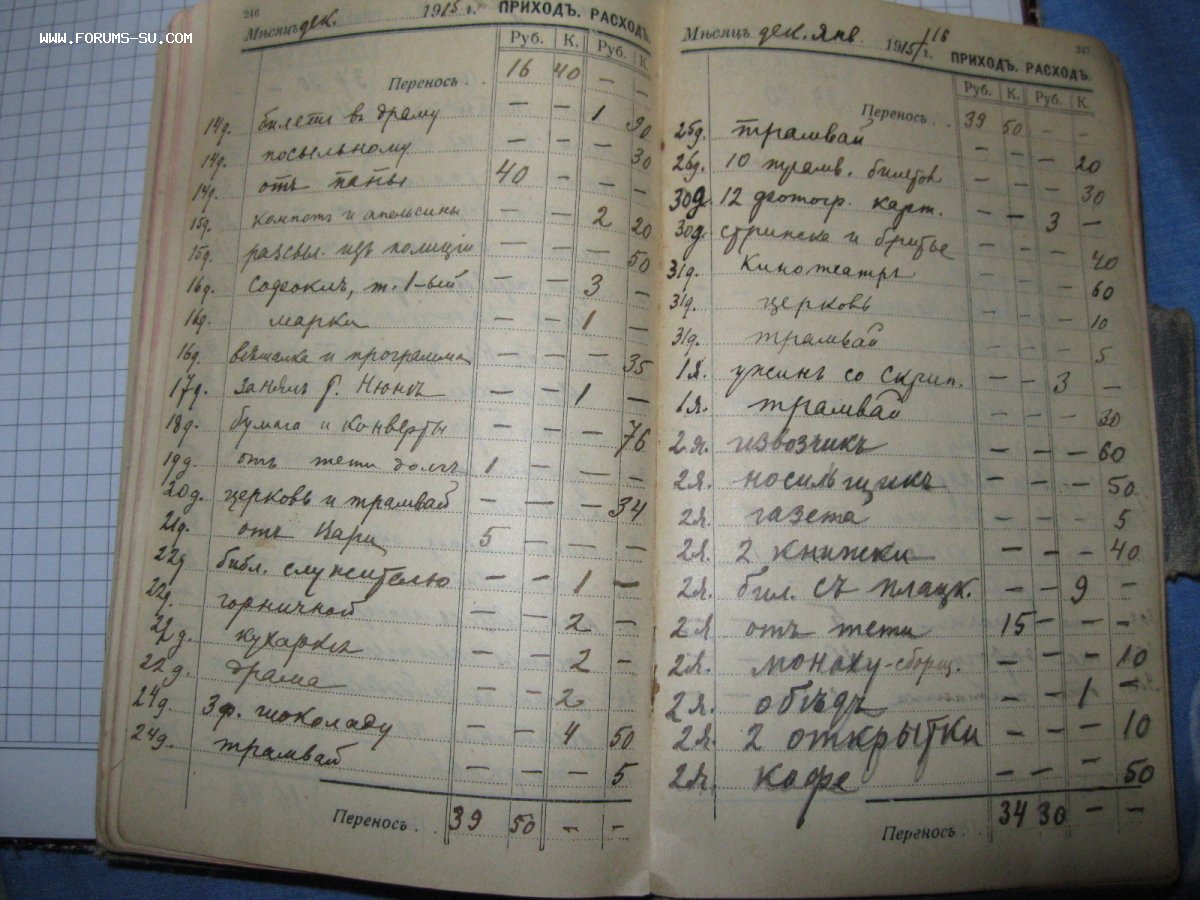 www.forums-su.com
246
Мѣсяцъ дек. 1915 г. ПРИХОДЪ. РАСХОДЪ.
Руб. К. Руб. К.
Переносъ 16 40 — —
14д. билеты въ драму — — 1 90
14д. посыльному — — — 30
14д. отъ папы 40 — — —
15д. компотъ и апельсины — — 2 20
15д. разсыл. изъ полиціи — — — 50
16д. Софоклъ, т. 1-ый — — 3 —
16д. марки — — 1 —
16д. вѣшалка и программа — — — 35
17д. занялъ Г. — — 1 —
18д. бумага и конверты — — — 76
19д. отъ тети долгъ 1 — — —
20д. церковь и трамвай — — — 34
21д. отъ 5 — — —
22д библ. служителю — — 1 —
22д. горничной — — 2 —
22д. кухарки — — 2 —
22д. драма — — 2
24д 3 ф. шоколаду — — 4 50
24д. трамвай — — — 5
Переносъ . 39 50 — —
247
Мѣсяцъ дек. янв. 1915/16 г. ПРИХОДЪ. РАСХОДЪ.
Руб. К. Руб. К.
Переносъ . . 39 50 — —
25д. трамвай — — — 20
26д. 10 трамв. билетов — — — 30
30д. 12 фотогр. карт. — — 3 —
30д. стрижка и бритье — — — 40
31д. Кинотеатръ — — — 60
31д. церковь — — — 10
31д. трамвай — — — 5
1я. ужинъ со скрип. — — 3 —
1я. трамвай — — — 30
2я. извозчикъ — — — 60
2я. носильщикъ — — — 50
2я. газета — — — 5
2я. 2 книжки — — — 40
2я. бил. съ плацк. — — 9 —
2я отъ тети 15 — — —
2я. монаху-сборщ. — — — 10
2я. объдъ — — 1 —
2я. 2 открытки — — — 10
2я. кофе — — — 50
Переносъ . . 34 30 — —